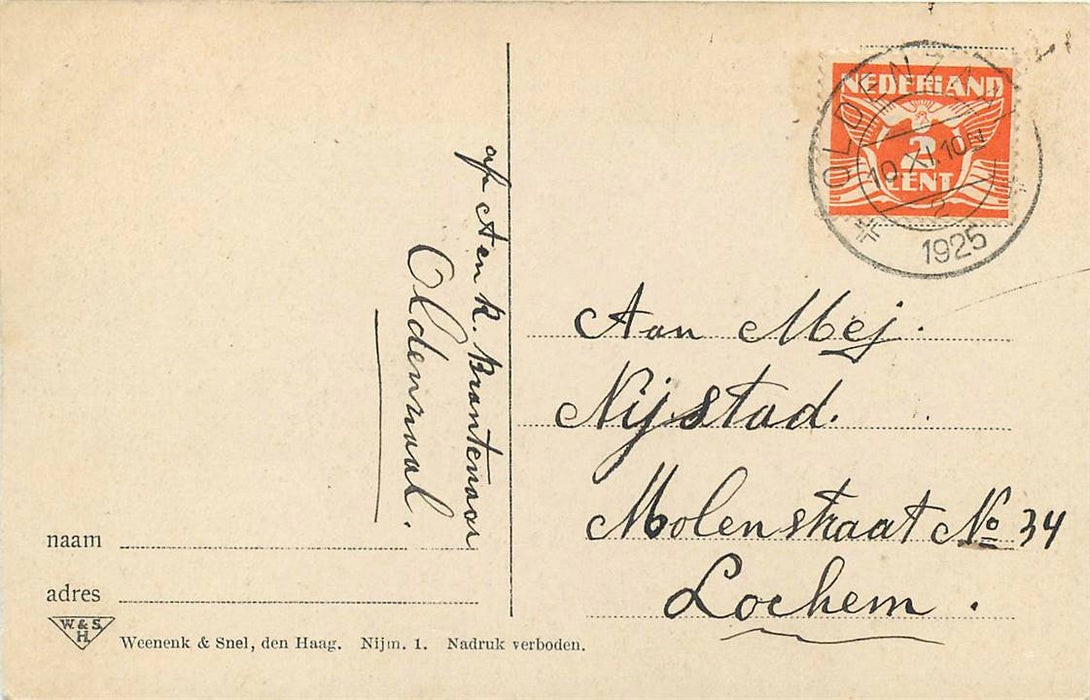 NEDERLAND
2
CENT
OLDENZAAL
10.XI.10N
2
1925
Aan Mej.
Nijstad.
Molenstraat No 34
Lochem.
K. Brantenaar
Oldenzaal.
naam
adres
W. & S.
H.
Weenenk & Snel, den Haag. Nijm. 1. Nadruk verboden.